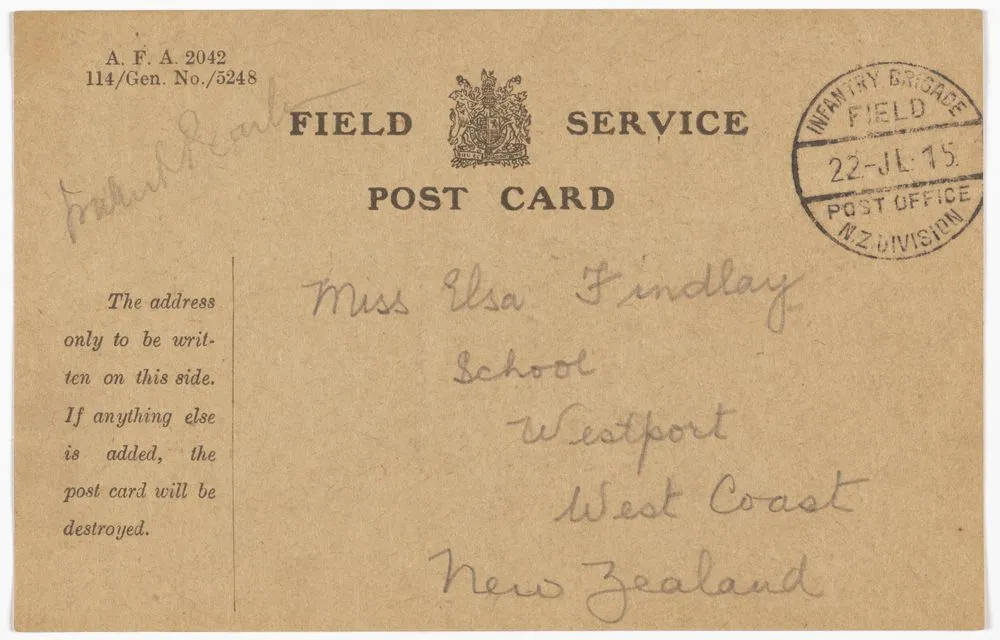 A. F. A. 2042
114/Gen. No./5248
FIELD SERVICE
POST CARD
INFANTRY BRIGADE
FIELD
22-JL-15
POST OFFICE
N.Z. DIVISION
The address
only to be writ-
ten on this side.
If anything else
is added, the
post card will be
destroyed.
Miss Elsa Findlay
School
Westport
West Coast
New Zealand